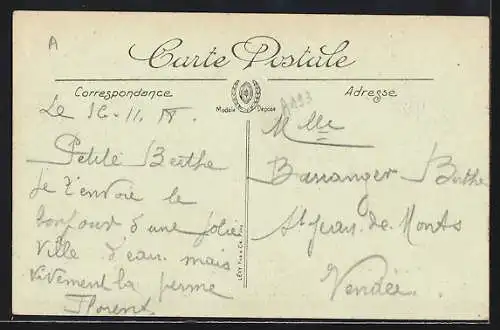 A
Carte Postale
Correspondance
Adresse
Modèle Déposé
A893
Le 16-11. 18.
Petite Berthe
Je t'envoie le
bonjour d'une jolie
ville d'eau. mais
vivement la ferme
Florent
LÉVY Fils & Cie, Paris
Mlle
Bassanger Berthe
St Jean. de. Monts
Vendée.